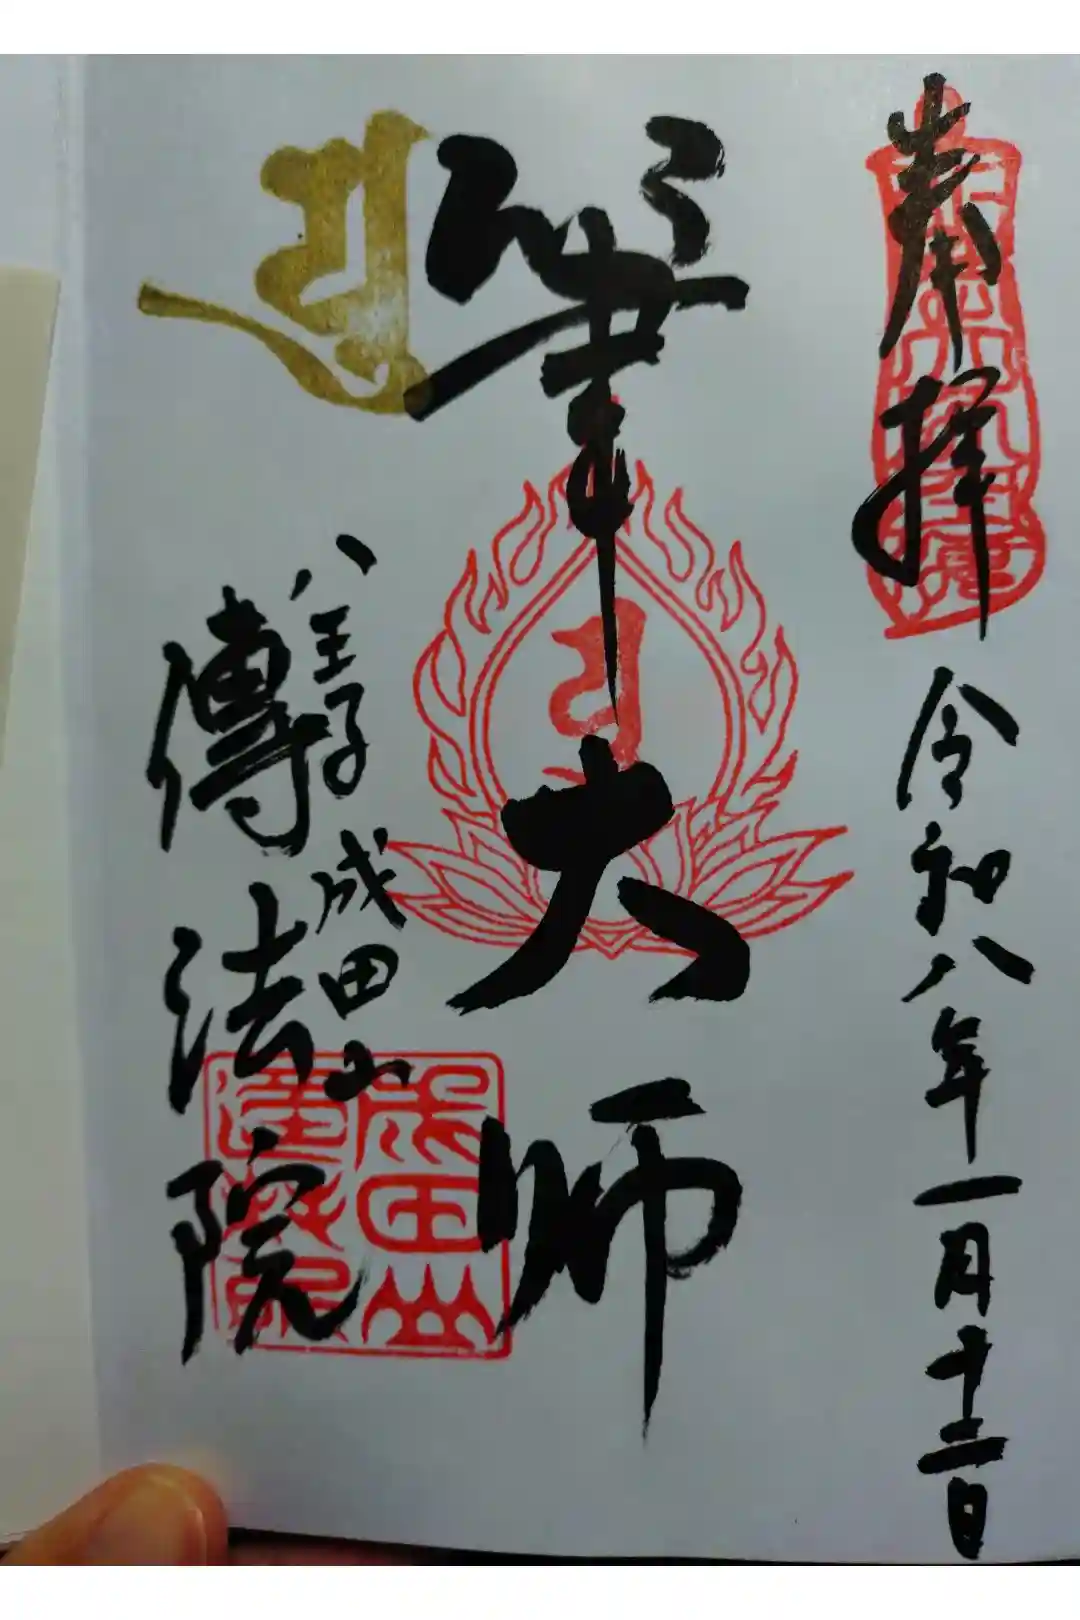 奉拝
令和八年一月十二日
筆大師
八王子成田山
傳法院
成田山